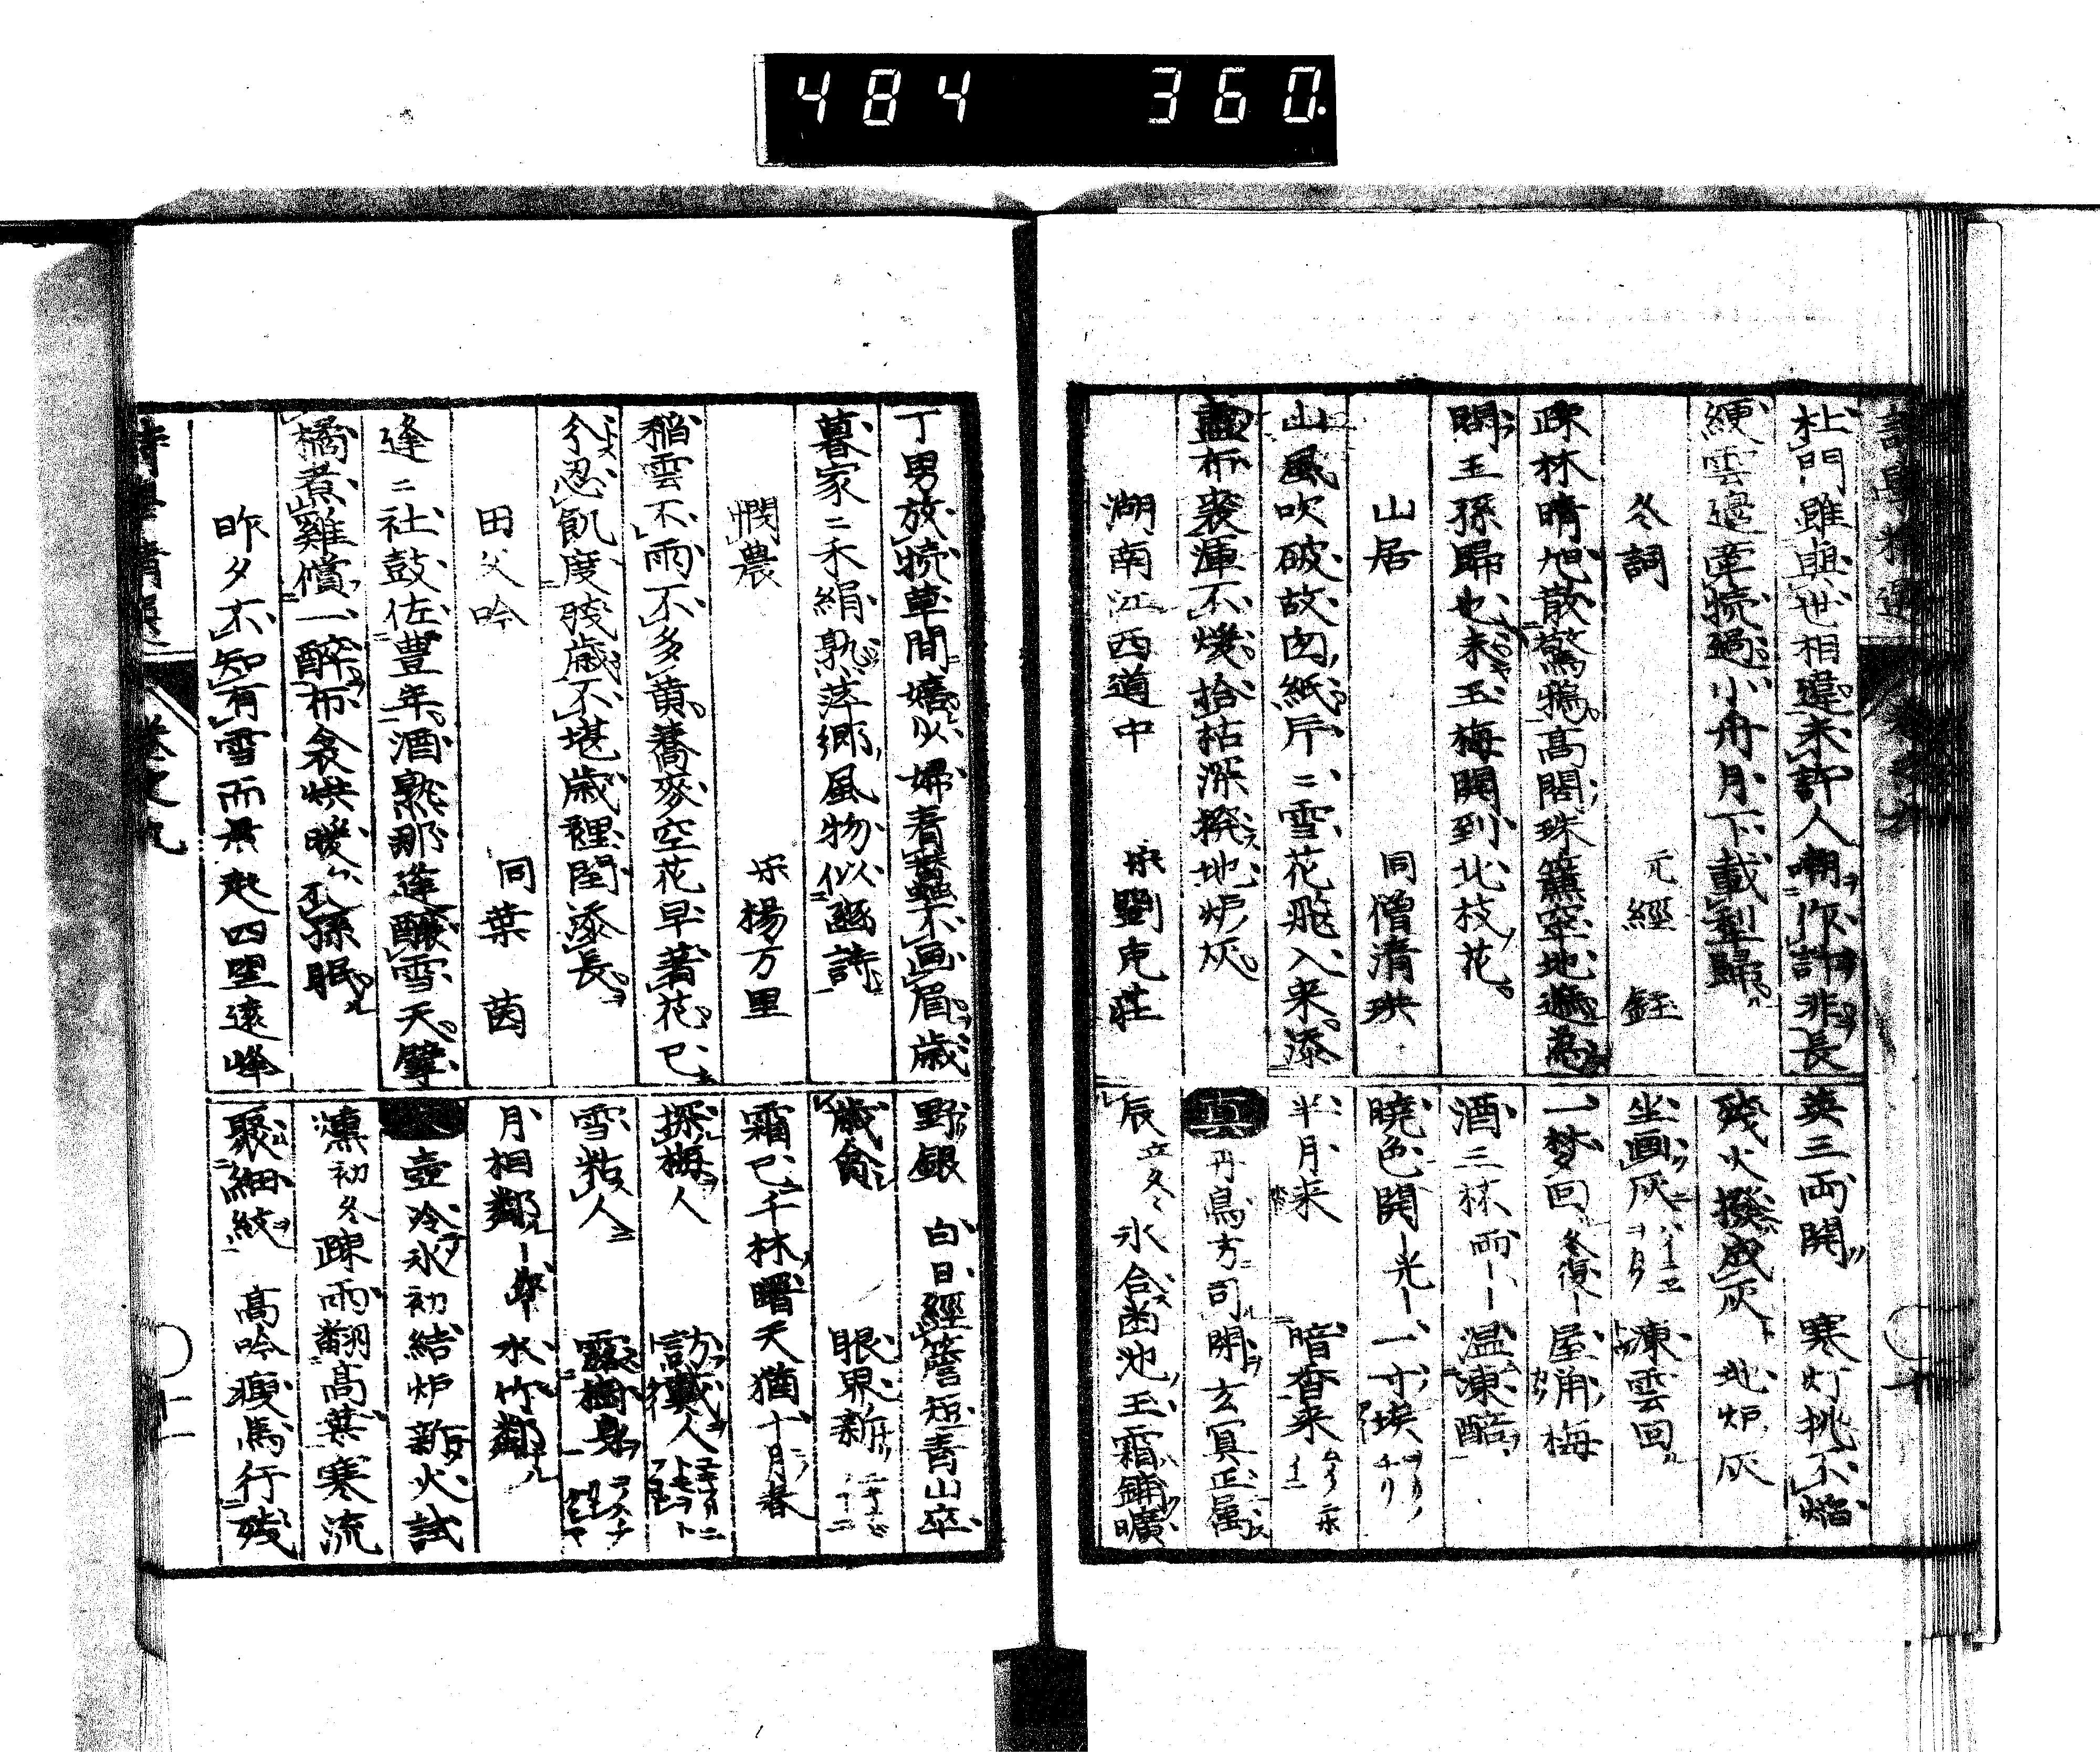 484 360
杜門雖與世相違未許人嘲作計非長
綆雲邊牽犢過小舟月下載犁歸
冬詞 元 經鉦
疎林晴旭散驚鴉高閣珠簾窣地遮為
問王孫歸也未玉梅開到北枝花
山居 同 僧清珙
山風吹破故囱紙片〻雪花飛入来添
盡布裘渾不煖拾枯深撥地炉灰
湖南江西道中 宋 劉克莊
英三両開 寒灯挑不焔
残火撥成灰 地炉灰
坐画灰 凍雲回
一梦回 屋角梅
酒三杯 雨 温凍醅
曉色開 光 一寸埃
半月来 暗香来
真 丹鳥方司閉玄冥正属
辰 立冬 氷合凾池玉霜鋪曠
丁男放犢草間嬉少婦看蠶不画眉歳
暮家〻禾絹熟萍郷風物似豳詩
憫農 宋 楊万里
稲雲不雨不多黄蕎麥空花早著花已
分忍飢度残歳不堪歳裡閏添長
田父吟 同 葉茵
逢〻社鼓佐豊年酒熟那逢釀雪天擘
橘煮雞償一醉布衾快暖 孫眠
昨夕不知有雪而晨起四望遠峰
野銀 白日經簷短青山卒
歳禽 眼界新
霜已千林曙天猶十月春
探梅人 訪戴人
雪粘人
月相鄰 水竹鄰
壺冷氷初結炉新火試
燻 初冬 疎雨翻高葉寒流
聚細紋 高吟瘦馬行残